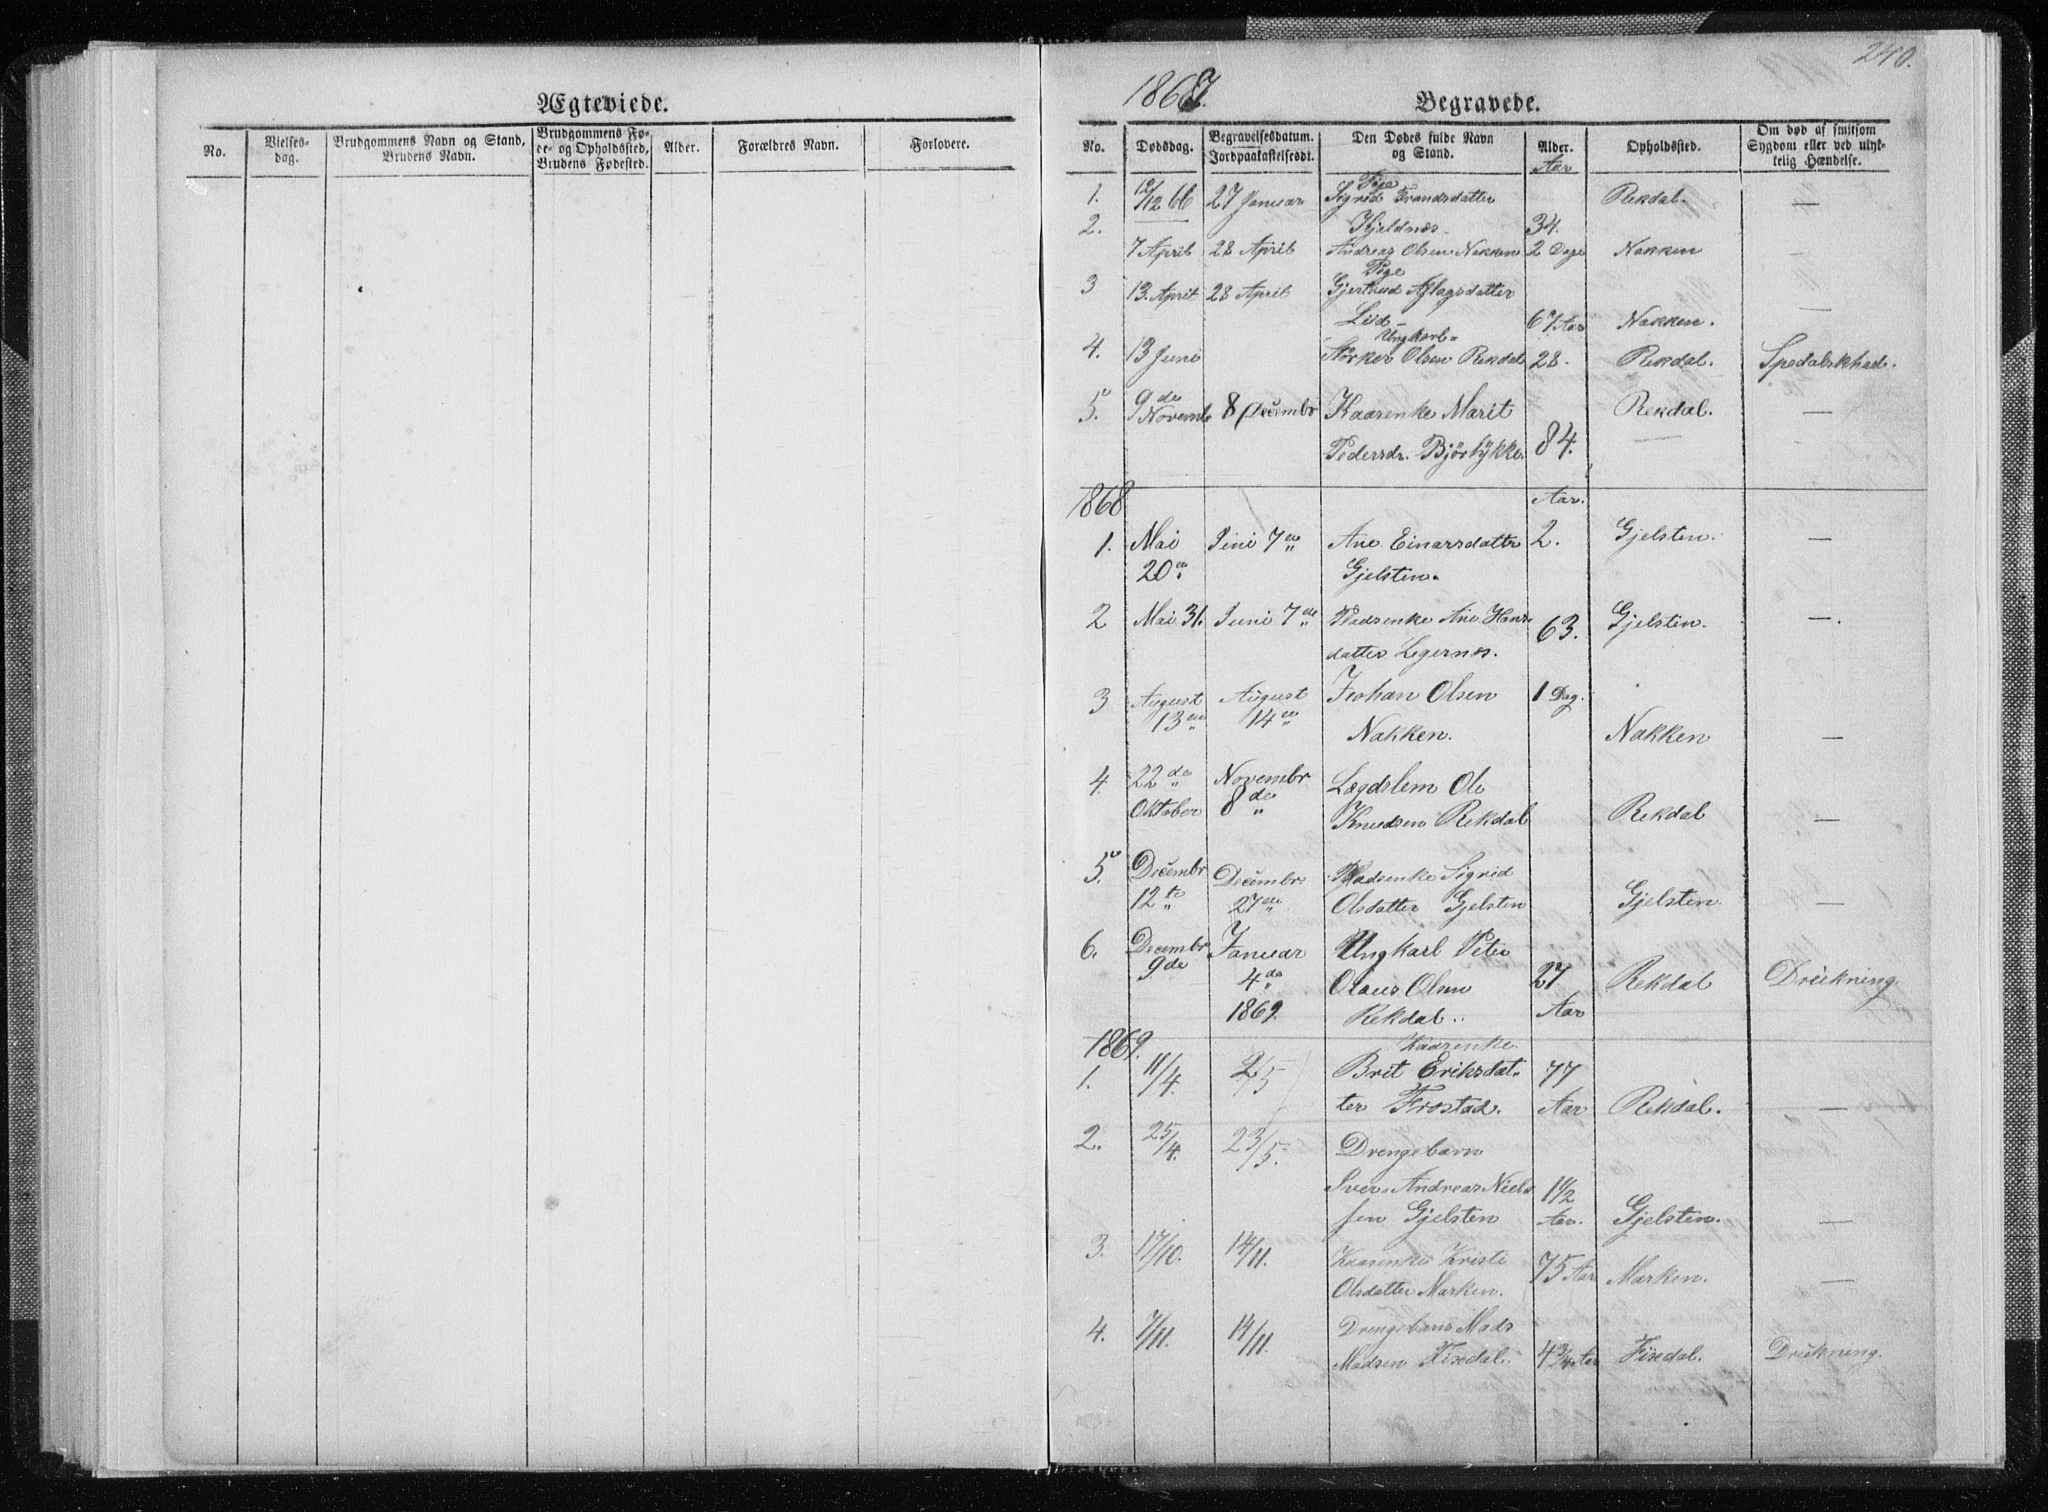 Ægteviede.
No.
Vielses-
dag.
Brudgommens Navn og Stand,
Brudens Navn.
Brudgommens Fø-
de- og Opholdssted,
Brudens Fødested.
Alder.
Forældres Navn.
Forlovere.
240.
1867.
Begravede.
No.
Dødsdag.
Begravelsesdatum.
Jordpaakastelsesdt.
Den Dødes fulde Navn
og Stand.
Alder.
Aar
Opholdssted.
Om død af smitsom
Sygdom eller ved ulyk-
kelig Hændelse.
Pige
1. /12 66 27 Januar Sigrid Trondsdatter Rekdal. —
2. Hjeldnæs. 34.
7 April 28 April Andreas Olsen Nakken 2 Dage Nakken —
Pige
3 13. April 28 April Gjertrud Aslagsdatter
Liid 67 Aar Nakken. —
Ungkarl
4. 13 Juni Størker Olsen Rekdal 28. Rekdal. Spedalskhed.
5. 9de Novembr 8 Decembr Kaarenke Marit Rekdal. —
Pedersdr. Bjørlykke. 84. —
1868 Aar.
1. Mai Juni 7en Ane Einarsdatter 2. Gjelsten. —
20en Gjelsten.
2 Mai 31. Juni 7de Madsenke Ane Hans- 63. Gjelsten. —.
datter Legernes.
3 August August Johan Olsen 1 Dag.
13en 14en Nakken. Nakken —
4. 22de Novembr Lægdslem Ole
Oktober 8de Knudsen Rekdal Rekdal —
5. Decembr Decembr. Madsenke Sigrid
12te 27en Olsdatter Gjelsten Gjelsten —
6. Decembr Januar Ungkarl Peter
9de 4de Olaus Olsen 27 Rekdal Drukning.
1869. Rekdal. Aar
1869. Kaarenke
1. 11/4. 2/5 Brit Eriksdat- 77
ter Frostad. Aar Rekdal. —
2. 25/4. 23/5. Drengebarn
Iver Andreas Niel- 1 1/2
sen Gjelsten Aar. Gjelsten. —
3. 17/10. 14/11. Kaarenke Kristi 75 Aar Marken. —
Olsdatter Marken.
4. 7/11. 14/11. Drengebarn Mads
Madsen Fixdal. 4 3/4 Aar Fixdal. Drukning.